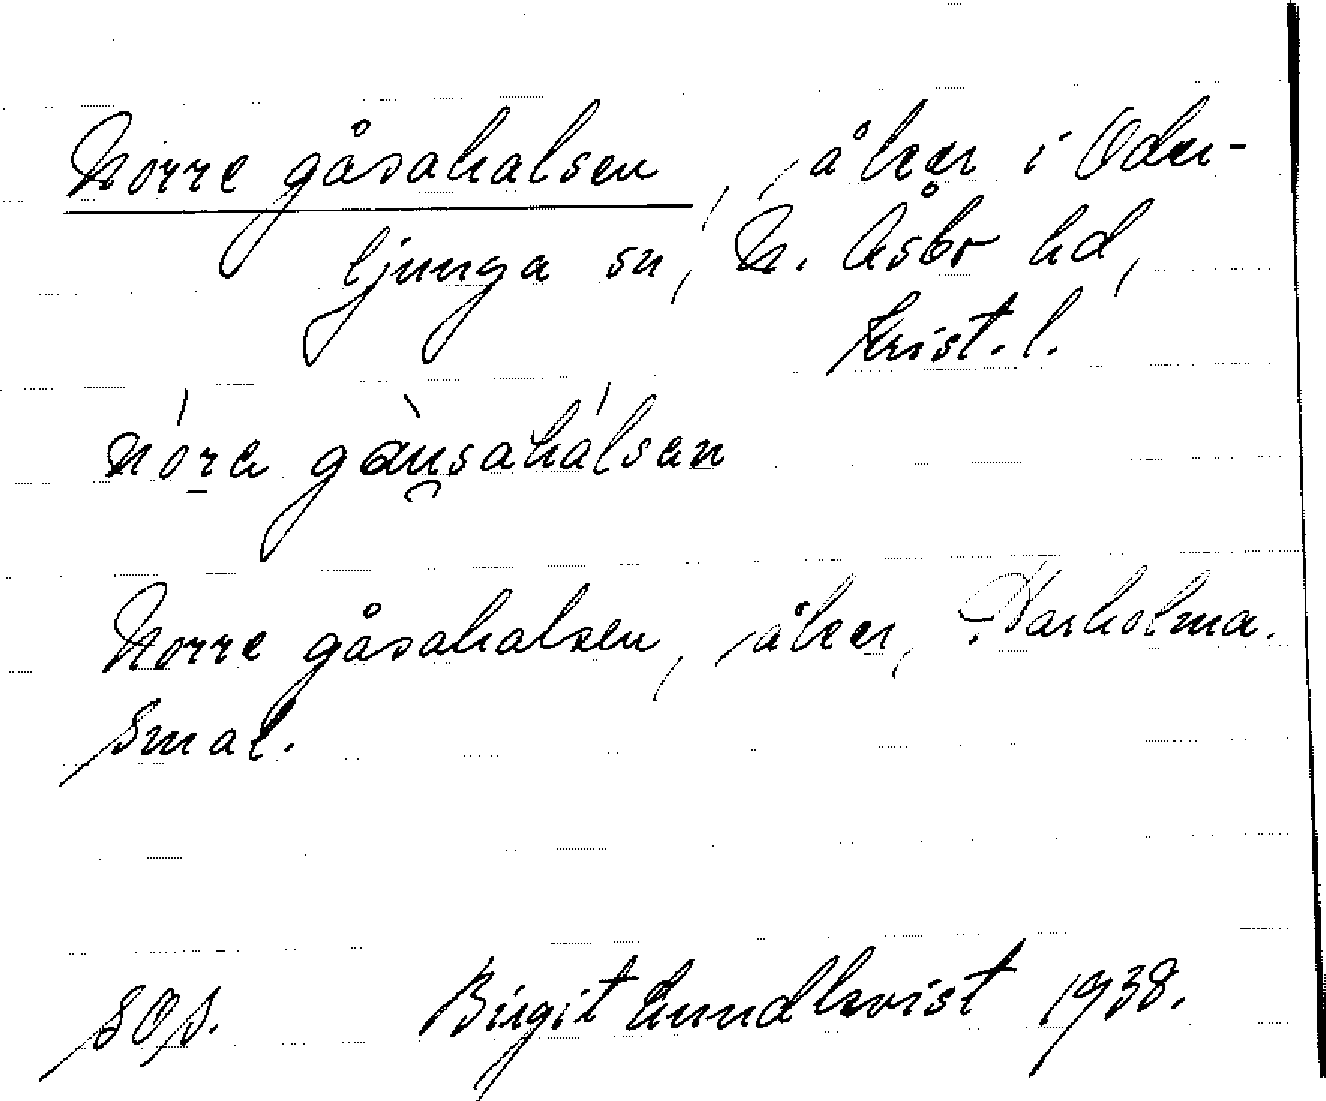 Norre gåsahalsen, åker i Oder-
ljunga sn, N. Åsbo hd,
Krist. l.
nórа gàu̯sahálsаn
Norre gåsahalsen, åker, Karholma.
Smal.
SOs. Birgit Lundkvist 1938.